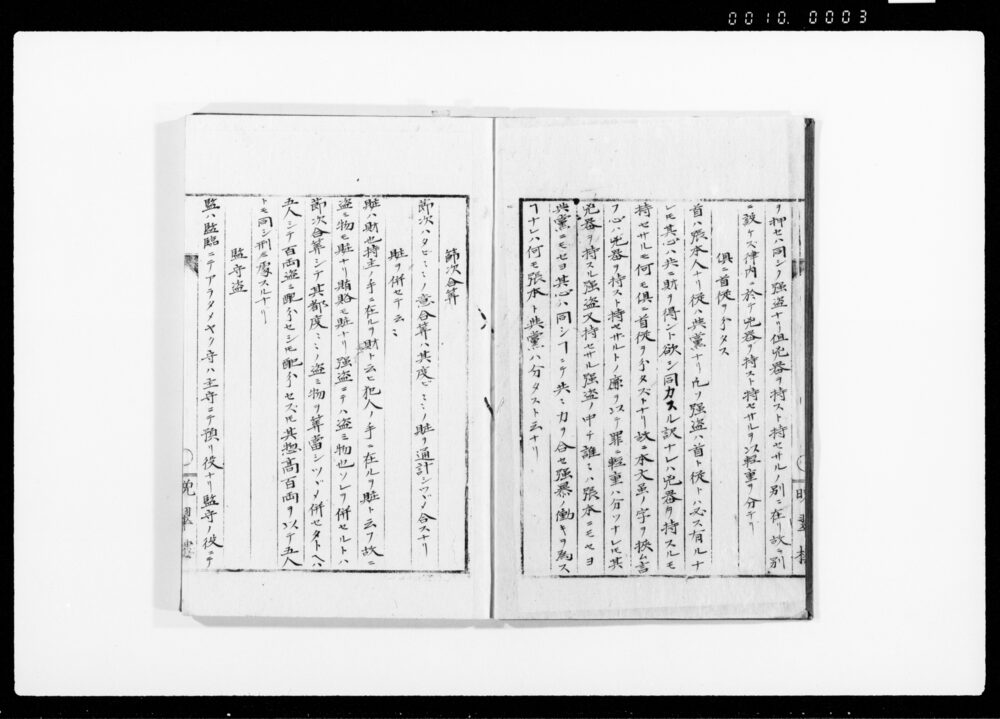 0010. 0003
ヲ押セハ同シク強盗ナリ但兇器ヲ持スト持セサルノ別ニ在リ故ニ別
ニ設ケズ律内ニ於テ兇器ヲ持スト持セサルヲ以軽重ヲ分テリ
俱ニ首従ヲ分タス
首ハ張本人ナリ従ハ共黨ナリ凡ソ強盗ハ首ト従トハ必ス有ルナ
レモ其心ハ共ニ財ヲ得ント欲シ同カスル訳ナレハ兇器ヲ持スルモ
持セサルモ何モ俱ニ首従ヲ分タズトナリ故本文並ノ字ヲ挟ム言
フ心ハ兇器ヲ持スト持セサルトノ廉ヲ以テ罪ニ軽重ハ分ツナレ圧其
兇器ヲ持スル強盗又持セサル強盗ノ中テ誰ミハ張本ニモセヨ
共黨ニモセヨ其心ハ同シヿニテ共ニ力ヲ合セ強暴ノ働キヲ為ス
ヿナレハ何モ張本ト共黨ハ分タスト云ナリ
晩翠楼
節次合算
節次ハタビミミノ意合算ハ其度ビミミノ贓ヲ通計シツヾメ合スナリ
贓ヲ併セテ云ミ
贓ハ財也持主ノ手ニ在ルヲ財ト云ヒ犯人ノ手ニ在ルヲ贓ト云フ故ニ
盗ミ物モ贓ナリ賄賂モ贓ナリ強盗ニテハ盗ミ物也ソレヲ併セルトハ
節次合算シテ其都度ミミノ盗ミ物ヲ算當シツヾメ併セタトヘハ
五人シテ百両盗ミ配分セシモ配分セズ圧其惣高百両ヲ以テ五人
トモ同シ刑ニ處スルナリ
監守盗
監ハ監臨ニテアラタメヤク守ハ主守ニテ預リ役ナリ監守ノ役ニテ
晩翠楼